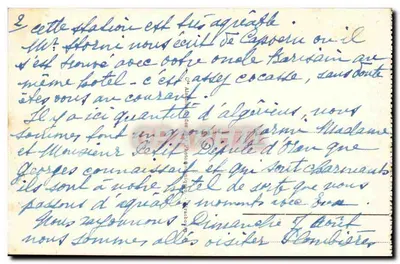 2 cette station est très agréable.
Mr Storni nous écrit de Capvern où il
s'est trouvé avec votre oncle Barisain au
même hotel - c'est assez cocasse, sans doute
êtes vous au courant.
Il y a ici quantité d'algériens, nous
sommes tout un groupe Madame
et Monsieur Petit Député d'Oran que
georges connaissait et qui sont charmants
ils sont à notre hôtel de sorte que nous
passons d'agréables moments avec eux.
Nous rayonnons. Dimanche 7 août
nous sommes allés visiter Plombières